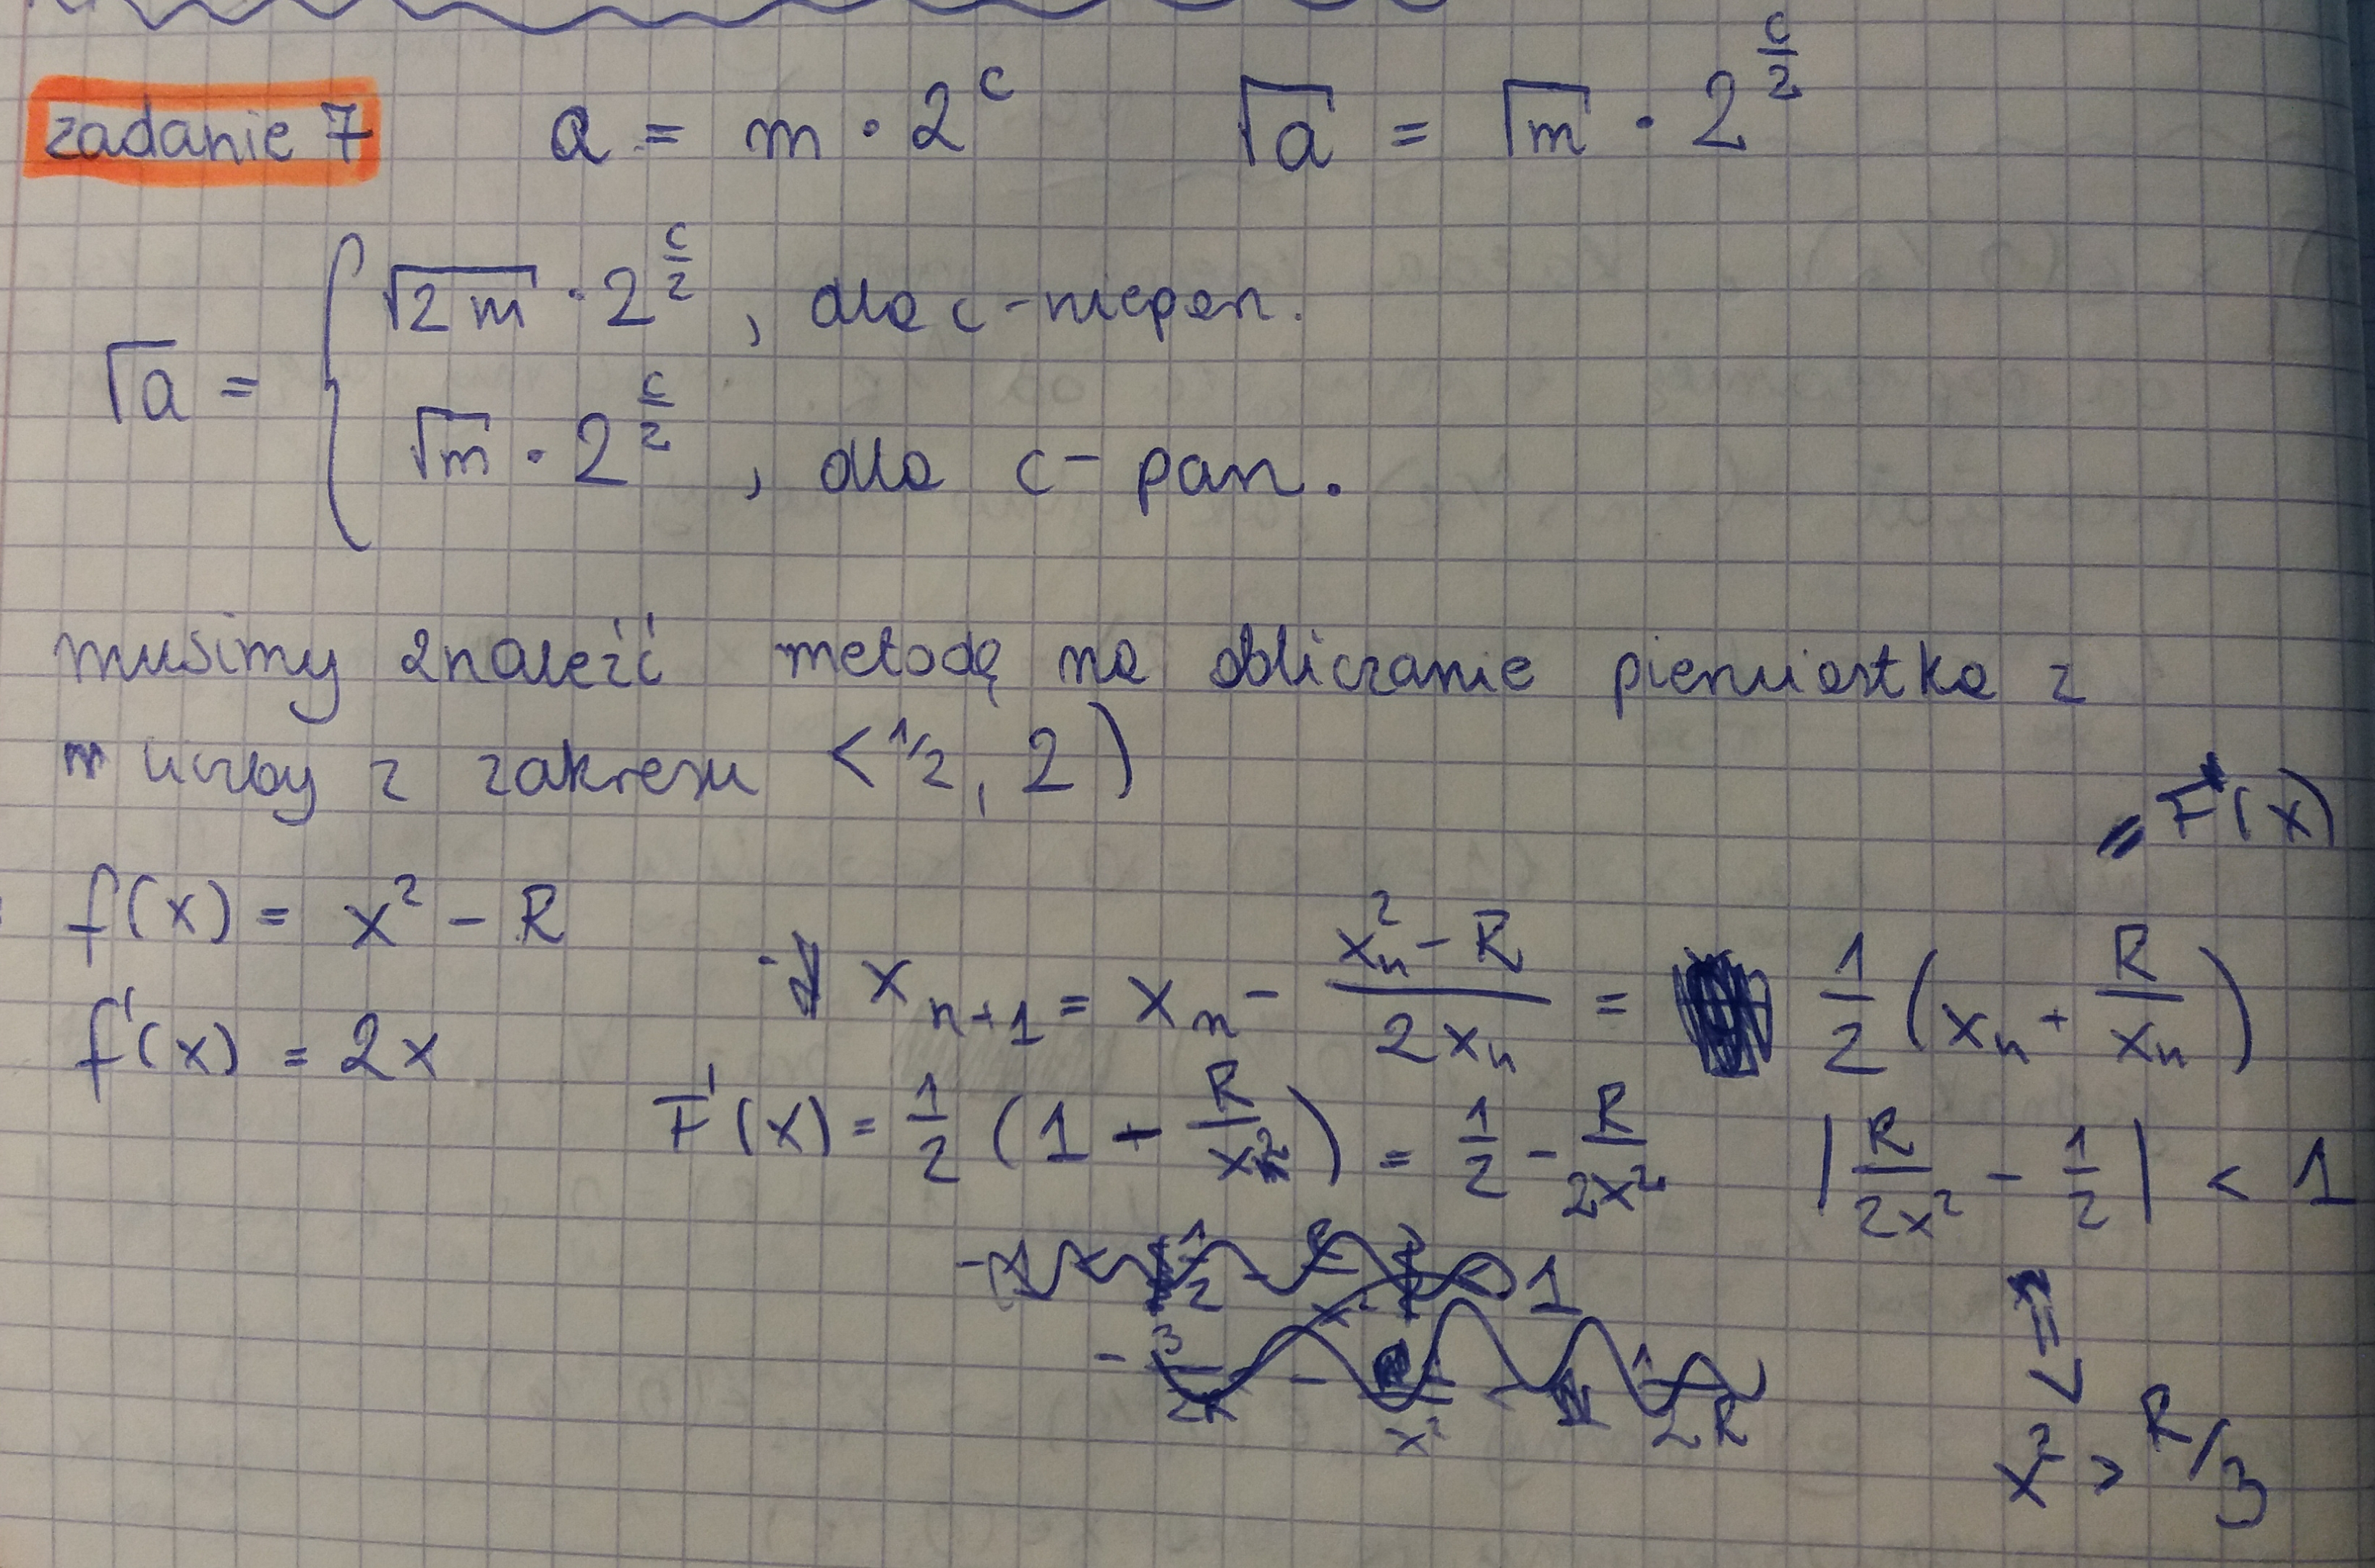 zadanie 7 a = m · 2^c √a = √m · 2^(c/2)
√a = { √(2m) · 2^(c/2), dla c-niepar.
√m · 2^(c/2), dla c-par.
musimy znaleźć metodę na obliczanie pierwiastka z
liczby z zakresu <1/2, 2)
= F(x)
f(x) = x² - R
x_(n+1) = x_n - (x_n² - R)/(2x_n) = 1/2 (x_n + R/x_n)
f'(x) = 2x
F'(x) = 1/2 (1 - R/x²) = 1/2 - R/(2x²) |R/(2x²) - 1/2| < 1
x² > R/3